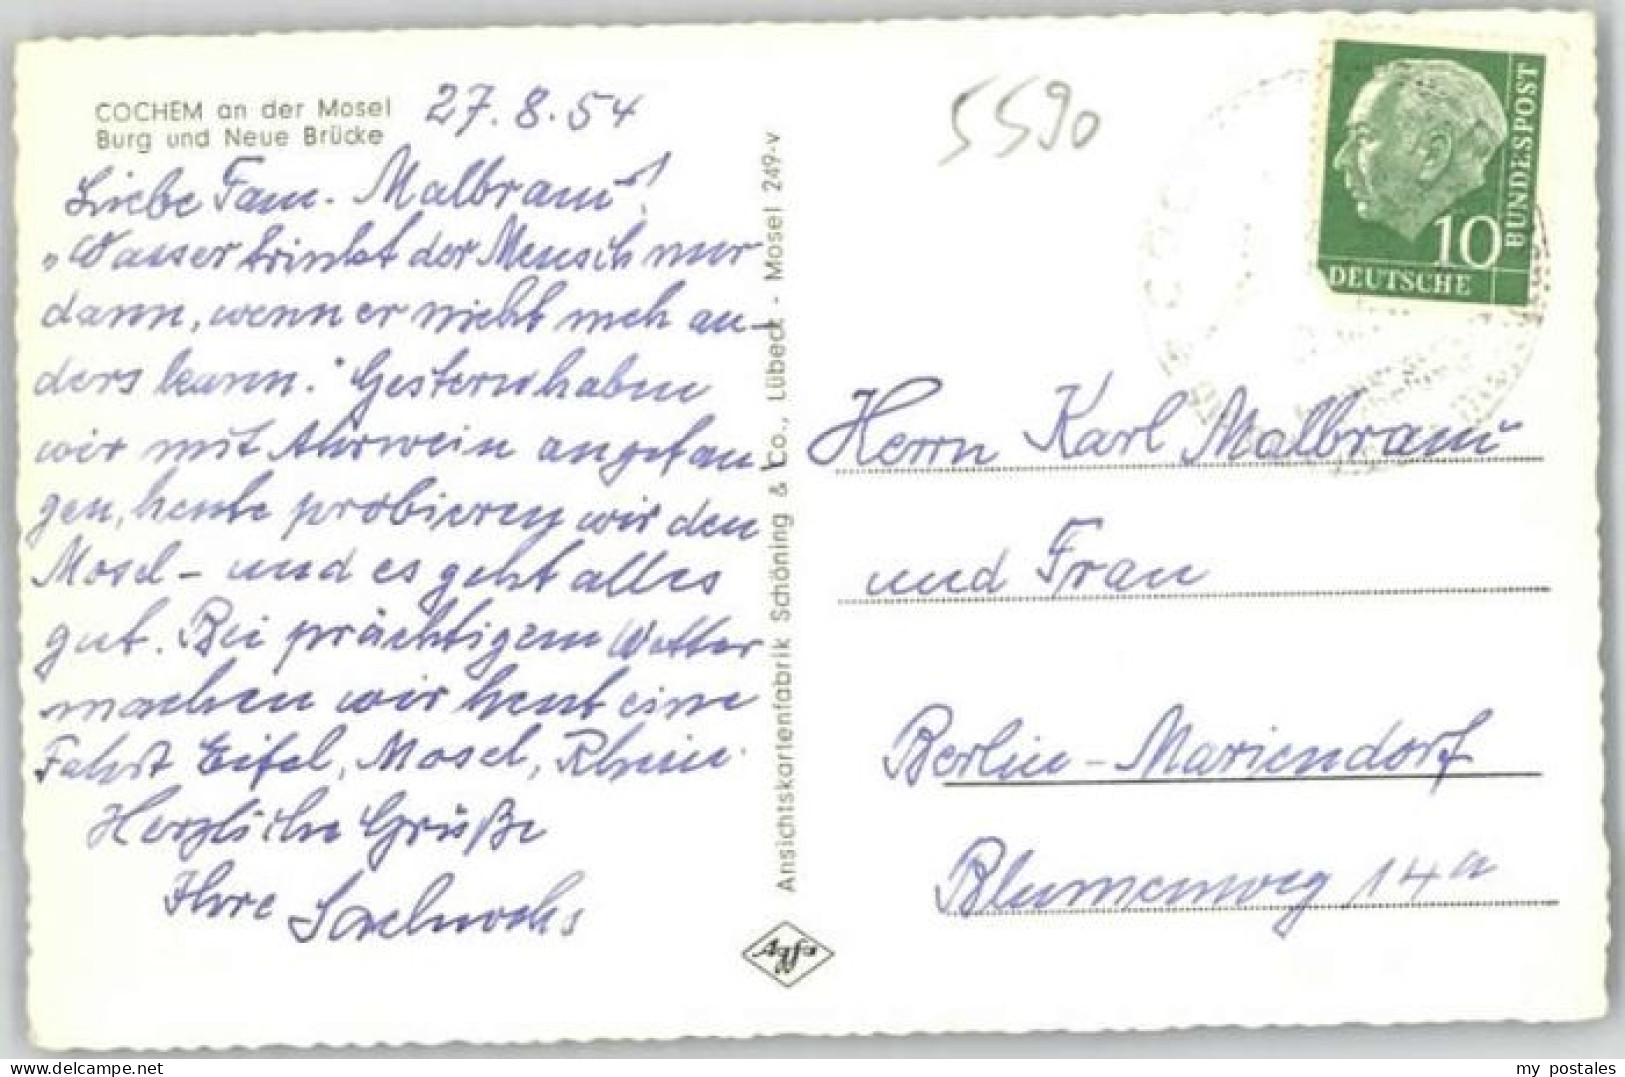 COCHEM an der Mosel
Burg und Neue Brücke
27.8.54
Liebe Fam. Malbrann!
"Wasser trinkt der Mensch nur
dann, wenn er nicht meh an-
ders kann." Gestern haben
wir mit Ahrwein angefan-
gen, heute probieren wir den
Mosel - und es geht alles
gut. Bei prächtigem Wetter
machen wir heut eine
Fahrt Eifel, Mosel, Rhein.
Herzliche Grüße
Ihre
Ansichtskartenfabrik Schöning & Co., Lübeck - Mosel 249-v
Agfa
5590
DEUTSCHE
BUNDESPOST
10
Herrn Karl Malbrann
und Frau
Berlin-Mariendorf
Blumenweg 14a
my postales